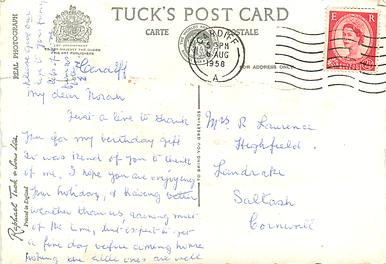 TUCK'S POST CARD
CARTE POSTALE
REAL PHOTOGRAPH
BY APPOINTMENT
CARDIFF
5 PM
AUG
1958
A
E R
FOR ADDRESS ONLY
Cardiff
My dear Norah
Just a line to thank
you for my birthday gift
it was kind of you to think
of me. I hope you are enjoying
your holiday, & having better
weather than us, raining most
of the time, but expect to get
a fine day before coming home
hoping the little ones are well
Mrs R Lawrence
Highfield
Landrake
Saltash
Cornwall
TO BRING YOU GREETINGS
Raphael Tuck & Sons Ltd.
Printed in England